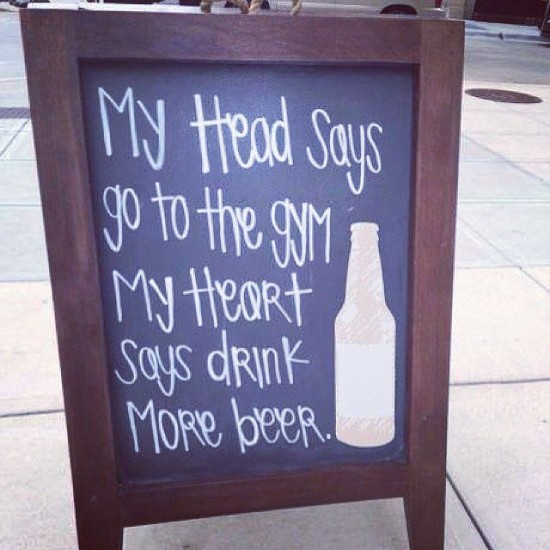 My Head Says
go to the gym
My Heart
says drink
More beer.